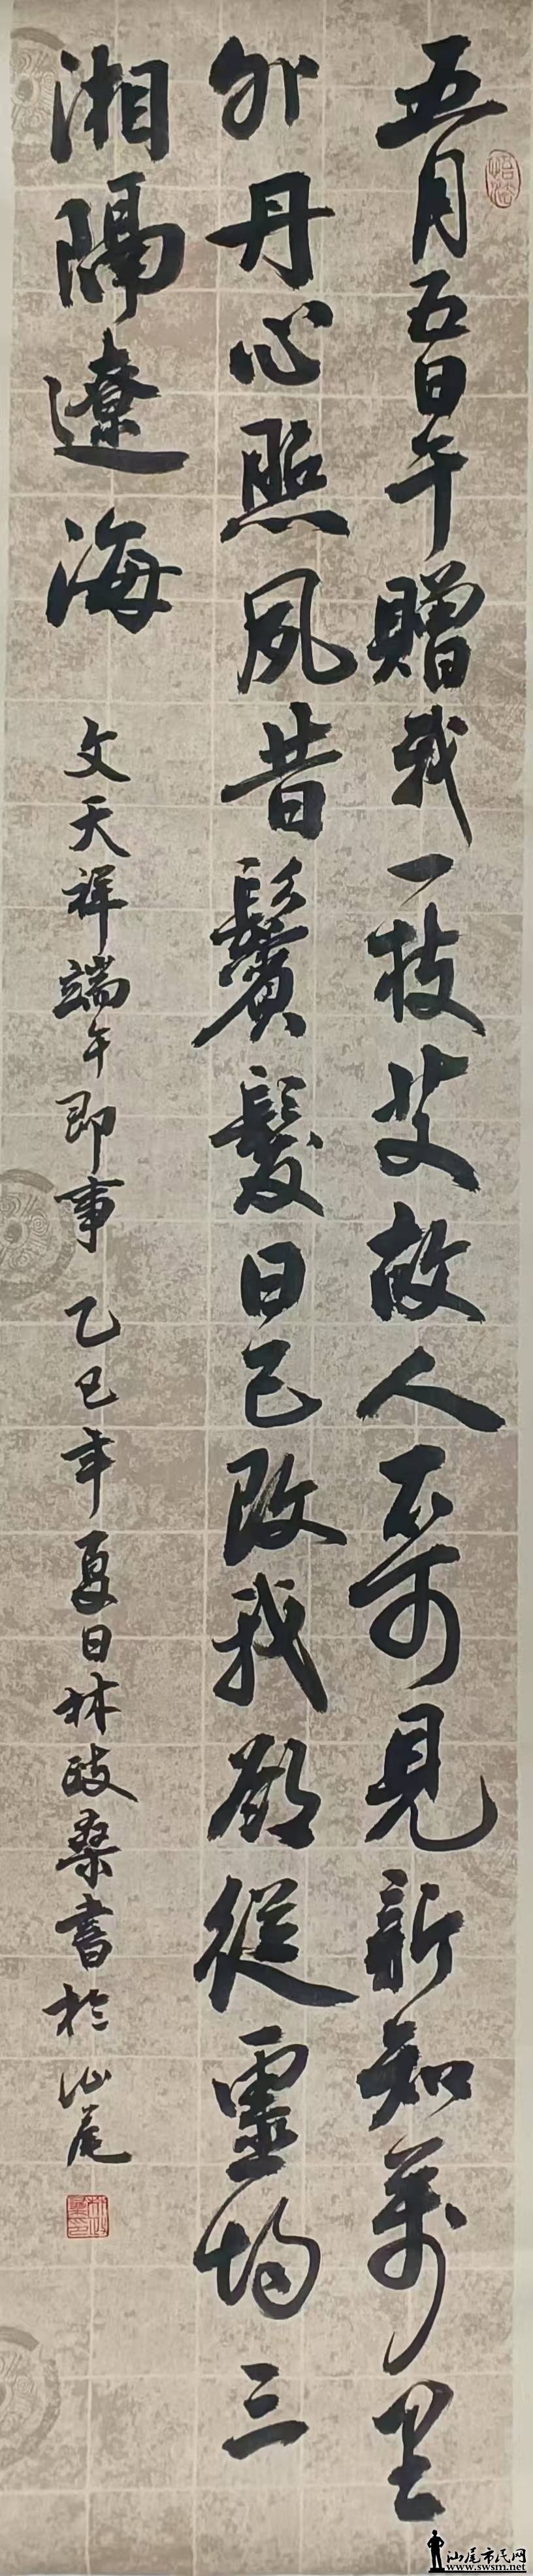 五月五日午贈我一枝艾故人不可見新知萬里
外丹心照夙昔鬢髮日已改我欲從靈均三
湘隔遼海
文天祥端午即事 乙巳年夏日林政桑書於汕尾
汕尾市民网
www.swsm.net